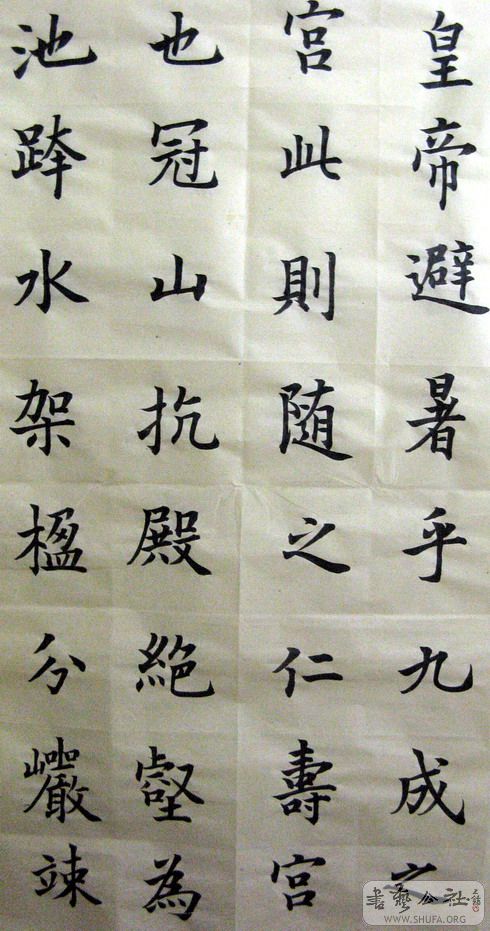 皇帝避暑乎九成之
宮此則随之仁壽宮
也冠山抗殿絶壑為
池跨水架楹分巖竦
書藝公社
WWW.SHUFA.ORG